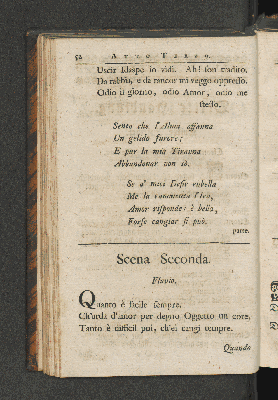 52 ATTO TERZO.
Uscir Idaspe io vidi. Ah! son tradito.
Da rabbia, e da rancor mi veggo oppresso.
Odio il giorno, odio Amor, odio me
stesso.
Sento che l'Alma affanna
Un gelido furore;
E per la mia Tiranna
Abbandonar non sò.
Se a' miei Desir rubella
Me la
Amor risponde: è bella,
Forse cangiar si può.
parte.
Scena Seconda.
Flavio.
Quanto è facile sempre,
Ch'arda d'amor per degno Oggetto un core,
Tanto è difficil poi, ch'ei cangi tempre.
Quando